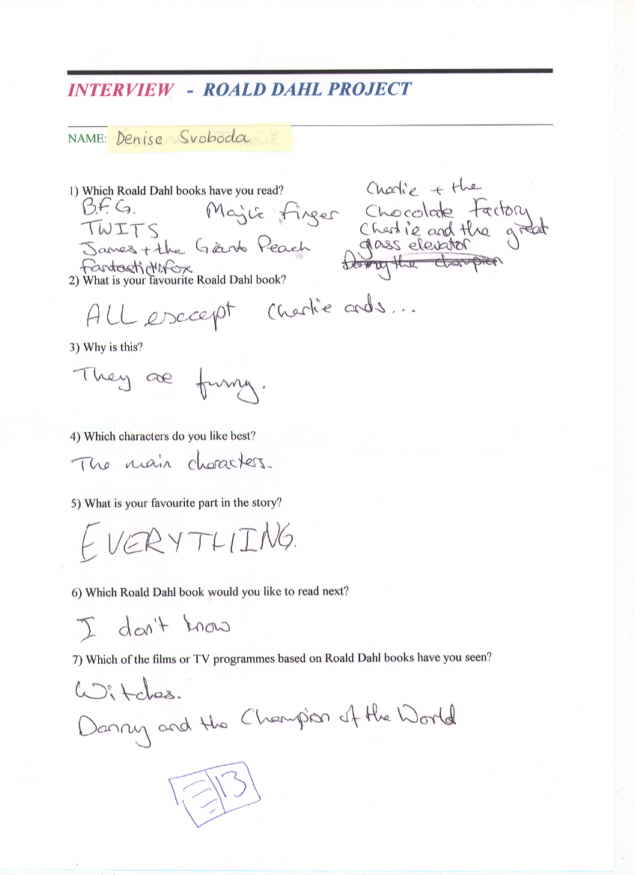 INTERVIEW - ROALD DAHL PROJECT
NAME: Denise Svoboda
1) Which Roald Dahl books have you read?
B.F.G.
TWITS
James + the Giants Peach
fantasticMrfox
Majic finger
Charlie + the
Chocolate Factory
Charlie and the great
glass elevator
Danny the champion
2) What is your favourite Roald Dahl book?
ALL esccept Charlie ands...
3) Why is this?
They are funny.
4) Which characters do you like best?
The main characters.
5) What is your favourite part in the story?
EVERYTHING.
6) Which Roald Dahl book would you like to read next?
I don't know
7) Which of the films or TV programmes based on Roald Dahl books have you seen?
Witches.
Danny and the Champion of the World
13